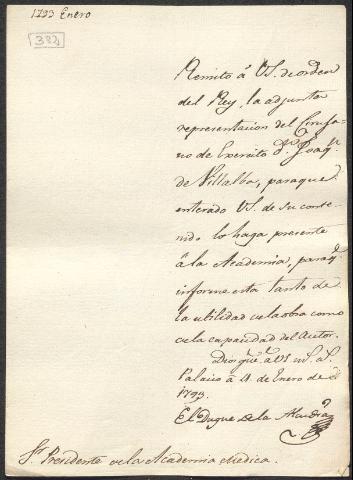 1793 Enero
382
Remito â VS. de orden
del Rey, la adjunta
representacion del Ciruja-
no de Exercito Dn. Joaqn.
de Villalba, paraque
enterado VS. de su conte-
nido lo haga presente
â la Academia, paraqe.
informe esta tanto de
la utilidad de la obra como
de la capacidad del Autor.
Dios gue. â VS ms. as.
Palacio â 4 de Enero de
1793.
El Duque de la Alcudia
Sr. Presidente de la Academia Medica.